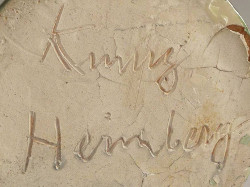 Kunz
Heimberg